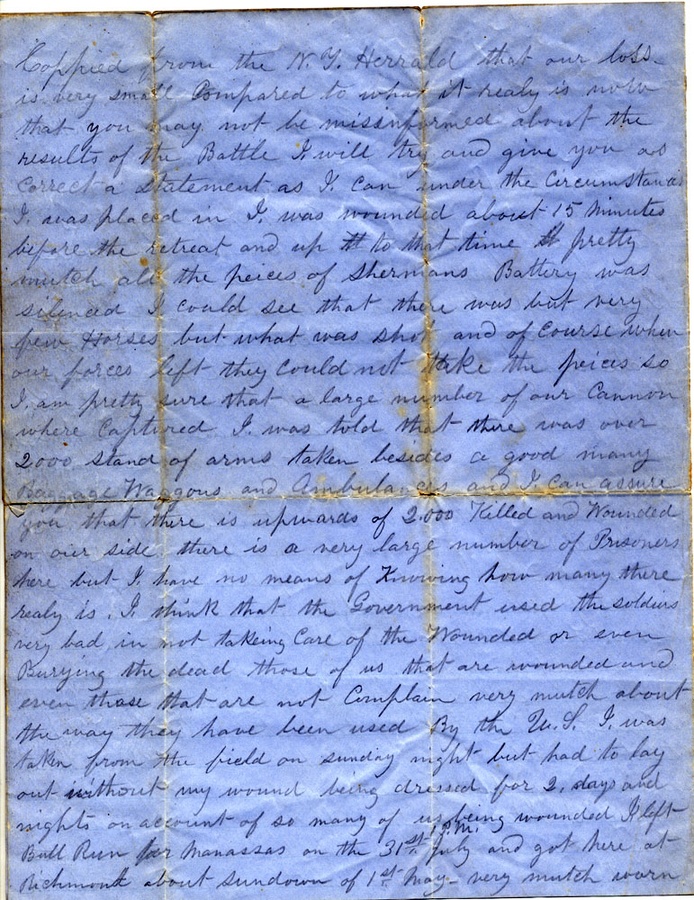 Coppied from the N.Y. Herrald that our loss
is very small Compared to what it realy is now
that you may not be missinformed about the
results of the Battle I will try and give you as
Correct a statement as I can under the Circumstances
I was placed in I was wounded about 15 Minutes
before the retreat and up to that time pretty
mutch all the peices of Shermans Battery was
silenced I could see that there was but very
few Horses but what was shot and of Course when
our forces left they Could not take the peices so
I am pretty sure that a large number of our Cannon
where Captured I was told that there was over
2000 stand of arms taken besides a good many
Baggage Waggons and Ambulances and I can assure
you that there is upwards of 2.000 Killed and Wounded
on our side there is a very large number of Prisoners
here but I have no means of Knowing how many there
realy is. I think that the Government used the soldiers
very bad in not takeing Care of the Wounded or even
Burying the dead those of us that are wounded and
even those that are not Complain very mutch about
the way they have been used By the U.S. I was
taken from the field on sunday night but had to lay
out without my wound being dressed for 2 days and
nights on account of so many of us being wounded I left
Bull Run for Manassas on the 31st July and got here at
Richmond about sundown of 1st very mutch worn